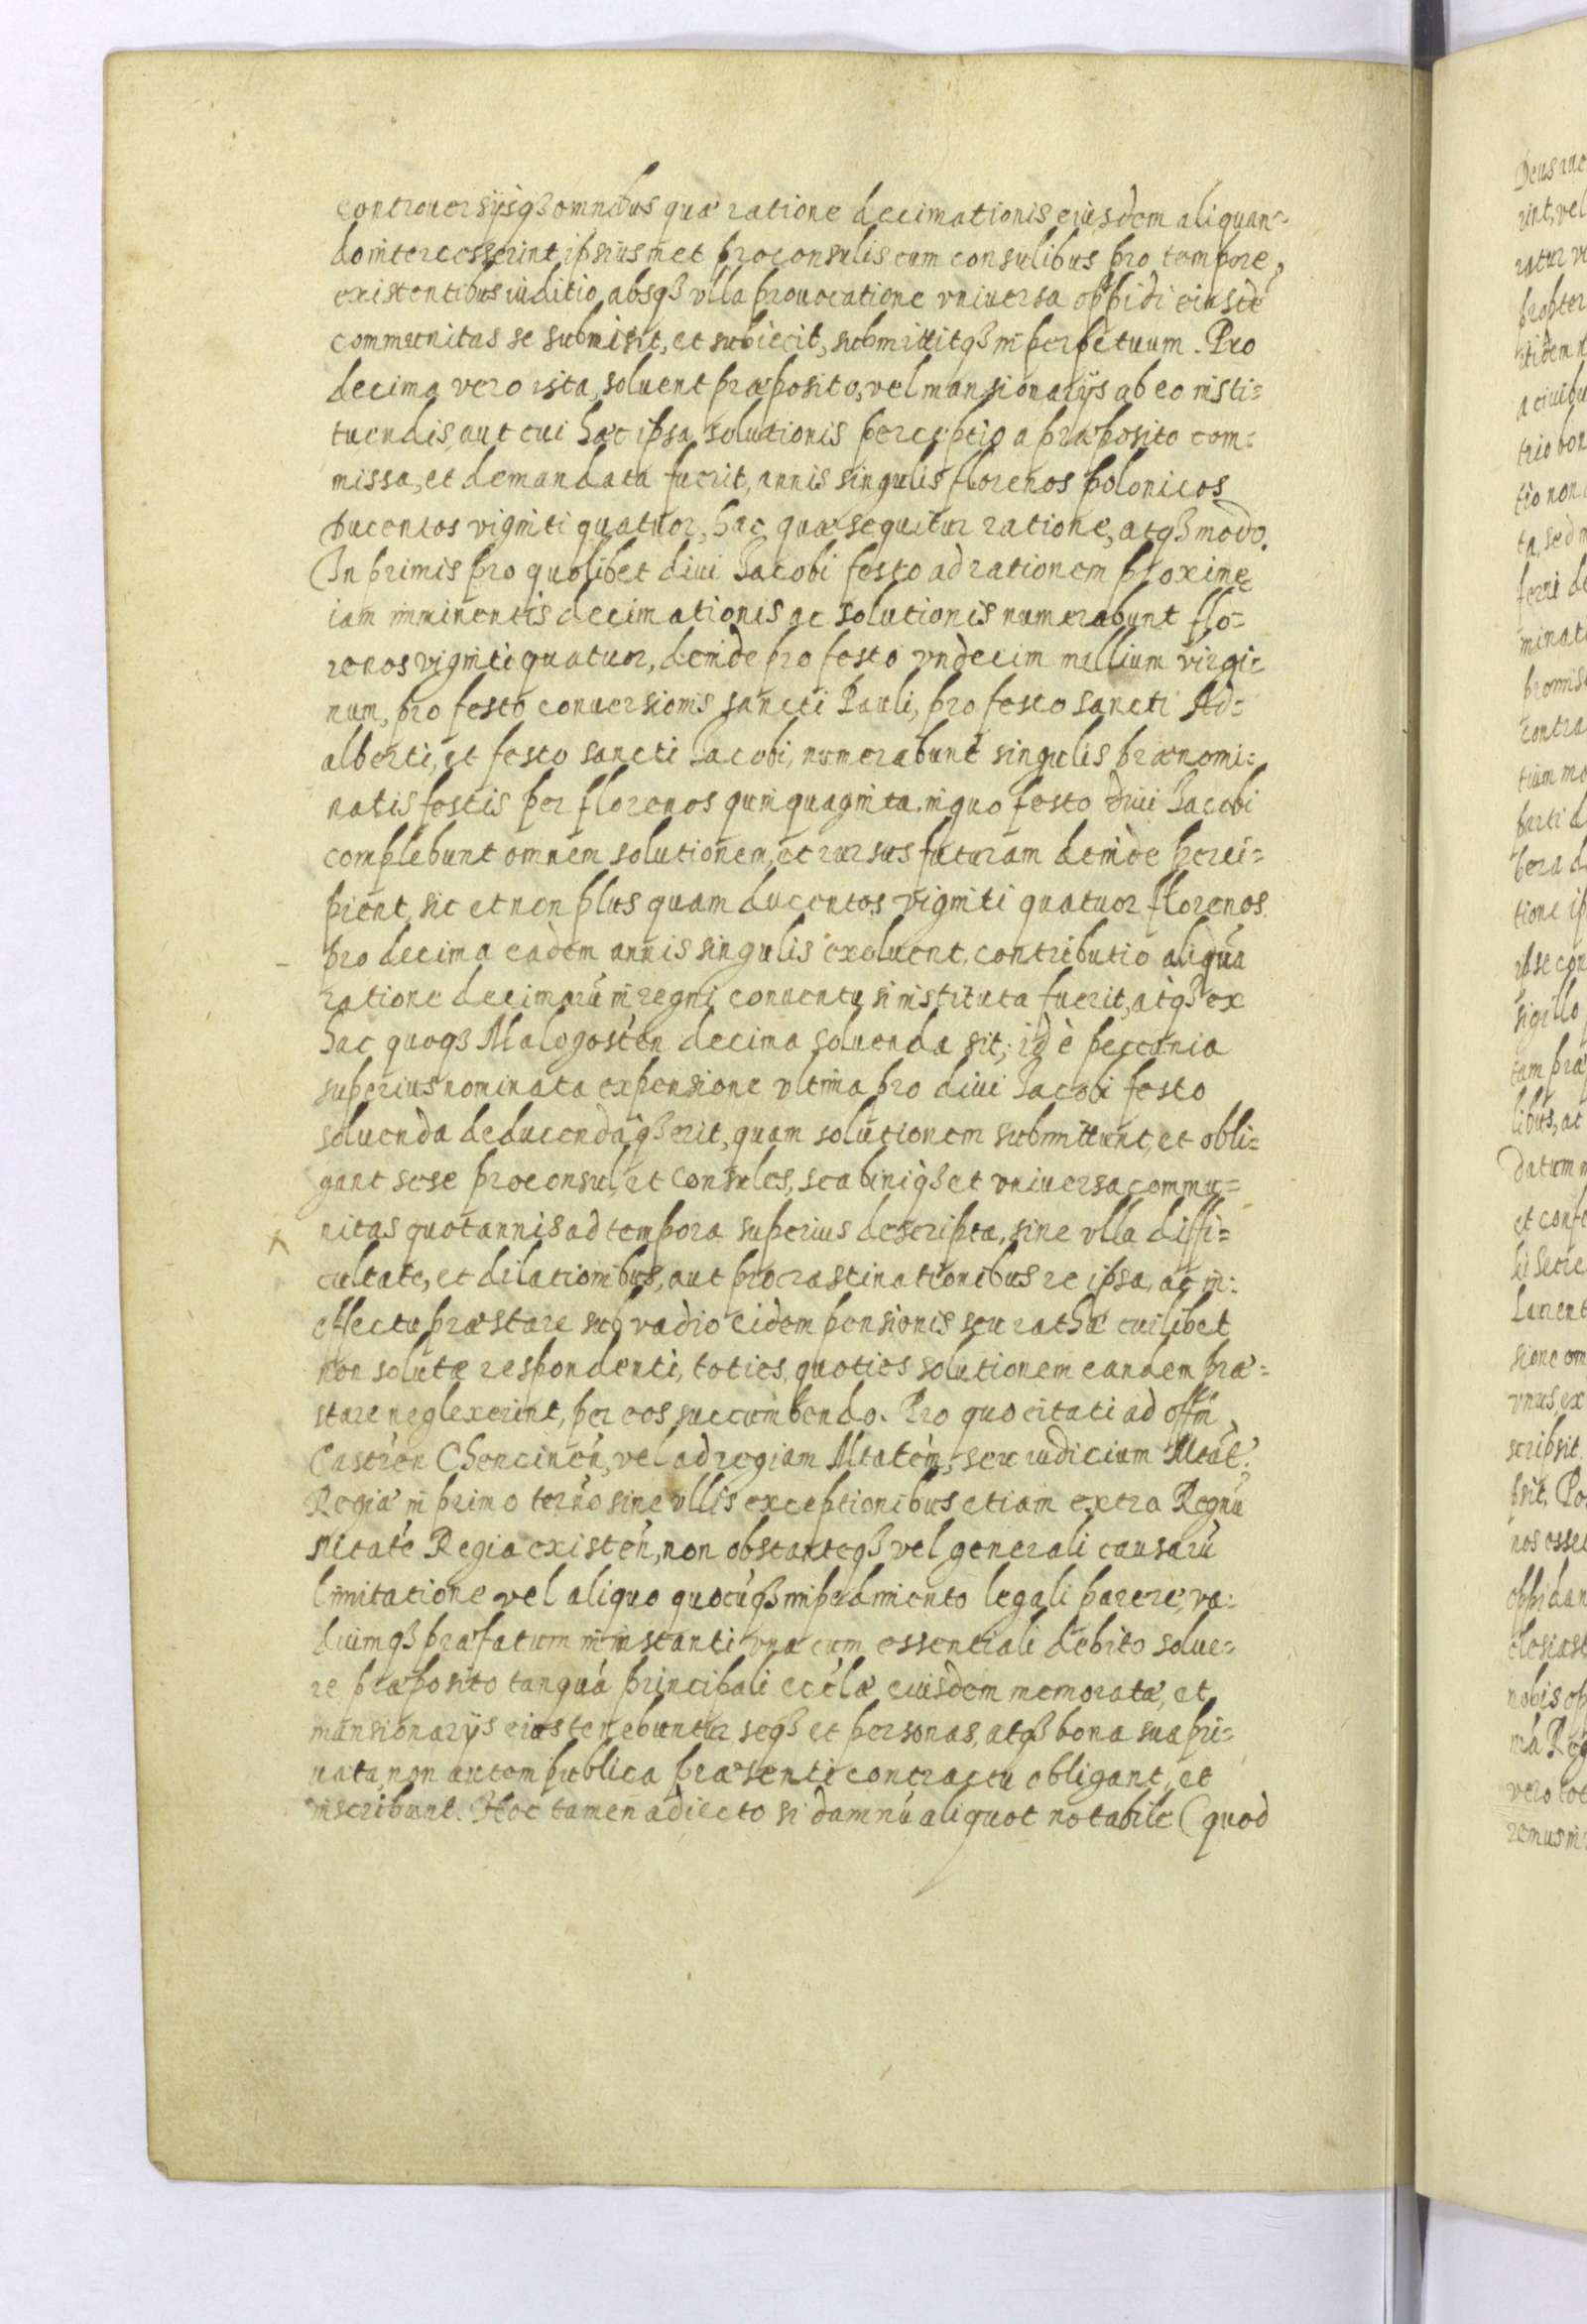 controuersijsqȝ omnibus quæ ratione decimationis eiusdem aliquan=
do intercesserint, ipsiusmet proconsulis cum consulibus pro tempore,
existentibus iuditio, absqȝ vlla prouocatione vniuersa oppidi eiusdē
communitas se submisit, et subiecit, submittitqȝ in perpetuum. Pro
decima vero ista, soluent præposito, vel mansionarijs ab eo insti=
tuendis, aut cui hæc ipsa solutionis perceptio a præposito com=
missa, et demandata fuerit, annis singulis florenos polonicos
Ducentos viginti quatuor, hac quæ sequitur ratione, atqȝ modo.
In primis pro quolibet diui Jacobi festo ad rationem proxime
iam imminentis decimationis ac solutionis numerabunt flo=
renos viginti quatuor, deinde pro festo vndecim millium virgi=
num, pro festo conuersionis sancti Pauli, pro festo sancti Ad=
alberti, et festo sancti Jacobi, numerabunt singulis prænomi=
natis festis per florenos quinquaginta. in quo festo diui Jacobi
complebunt omnem solutionem, et rursus futuram deinde perci=
pient, sic et non plus quam ducentos viginti quatuor florenos
pro decima eadem annis singulis exoluent. contributio aliquā
ratione decimarū in regni conuentu si instituta fuerit, atqȝ ex
hac quoqȝ Malogosteń decima soluenda sit, id è peccunia
superius nominata expensione vltima pro diui Jacobi festo
soluenda deducendaqȝ erit, quam solutionem submittunt, et obli=
gant sese proconsul, et Consules, scabiniqȝ et vniuersa commu=
nitas quotannis ad tempora superius descripta, sine vlla diffi=
cultate, et dilationibus, aut procrastinationibus re ipsa, ac in:
effectu præstare sub vadio eidem pensionis seu rathæ cuilibet
non solutæ respondenti, toties, quoties solutionem eandem præ=
stare neglexerint, per eos succumbendo. Pro quo citati ad offm̄
Castreń Chencineń, vel ad regiam Mtatem, seu iudicium Mtat̄
Regiæ in primo termo sine vllis exceptionibus etiam extra Regnū
Mtate Regia existeń, non obstanteqȝ vel generali causarū
limitatione vel aliquo quocūqȝ impedimento legali parere, va=
diumqȝ præfatum in instanti vna cum essentiali debito solue=
re præposito tanquā principali ecclæ eiusdem memoratæ, et
mansionarijs eius tenebuntur, seqȝ et personas, atqȝ bona sua pri=
uata, non autem publica præsenti contractu obligant, et
inscribunt. Hoc tamen adiecto si damnū aliquot notabile (quod